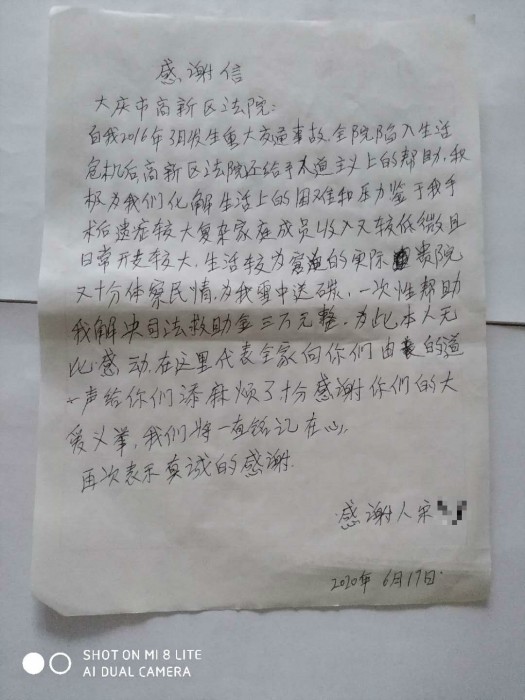 感谢信
大庆市高新区法院:
自我2016年3月发生重大交通事故,全院陷入生活
危机后高新区法院还给予人道主义上的帮助,积
极为我们化解生活上的困难和压力鉴于我手
术后遗症较大复杂家庭成员收入又较低微且
日常开支较大,生活较为窘迫的实际 贵院
又十分体察民情,为我雪中送碳,一次性帮助
我解决司法救助金三万元整,为此本人无
比感动,在这里代表全家向你们由衷的道
一声给你们添麻烦了十分感谢你们的大
爱义举,我们将一直铭记在心,
再次表示真诚的感谢.
感谢人宋
2020年6月17日.
SHOT ON MI 8 LITE
AI DUAL CAMERA